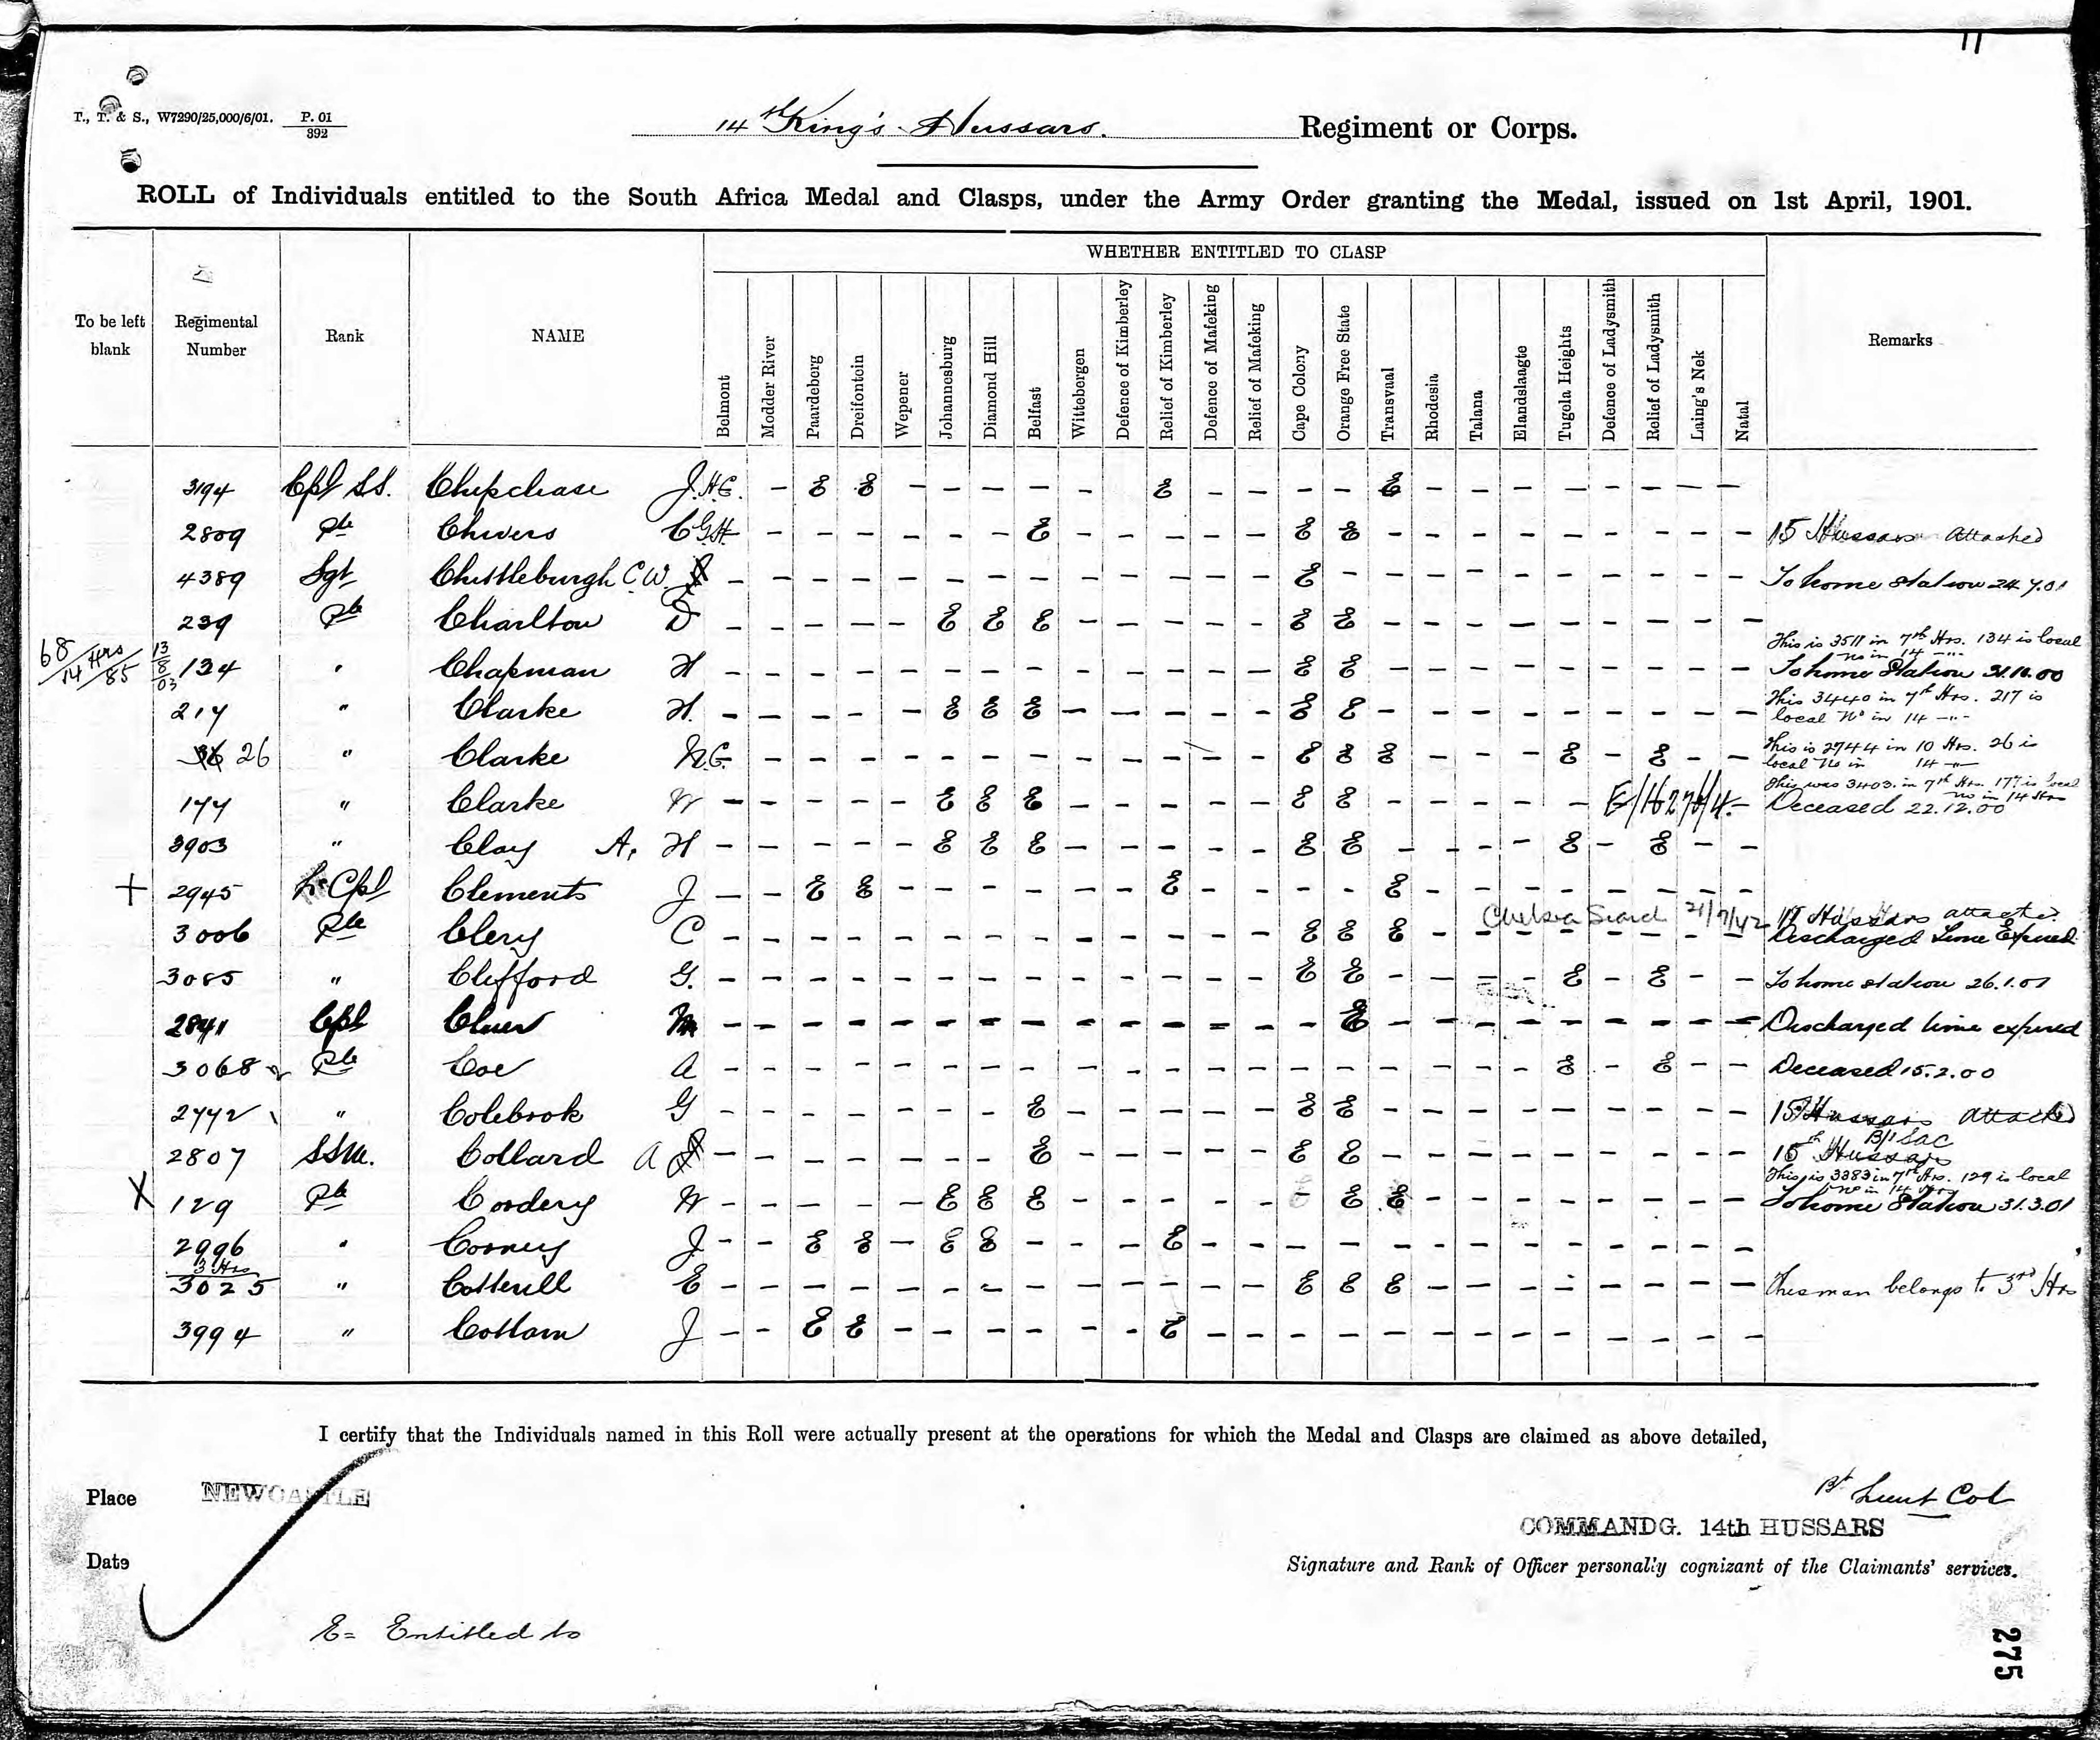 11
T., T. & S., W7290/25,000/6/01. P. 01/392
14th King's Hussars. Regiment or Corps.
ROLL of Individuals entitled to the South Africa Medal and Clasps, under the Army Order granting the Medal, issued on 1st April, 1901.
WHETHER ENTITLED TO CLASP
To be left blank Regimental Number Rank NAME Belmont Modder River Paardeberg Dreifontein Wepener Johannesburg Diamond Hill Belfast Wittebergen Defence of Kimberley Relief of Kimberley Defence of Mafeking Relief of Mafeking Cape Colony Orange Free State Transvaal Rhodesia Talana Elandslaagte Tugela Heights Defence of Ladysmith Relief of Ladysmith Laing's Nek Natal Remarks
3194 Cpl SS. Chipchase J.H.C. - E E - - - - - E - - - - E - - - - - - - -
2809 Pte Chivers C G H - - - - - - E - - - - - E E - - - - - - - - - 15 Hussars attached
4389 Sgt Chittleburgh C.W. - - - - - - - - - - - - - E - - - - - - - - - - To home station 24.7.01
239 Pte Charlton D - - - - - E E E - - - - - E E - - - - - - - - -
68/14 Hrs/85 13/8/03 134 " Chapman H - - - - - - - - - - - - - E E - - - - - - - - - This is 3511 in 7th Hrs. 134 is local no in 14 -"- To home Station 31.10.00
217 " Clarke H. - - - - - E E E - - - - - E E - - - - - - - - - This 3440 in 7th Hrs. 217 is local No in 14 -"-
26 " Clarke N.G. - - - - - - - - - - - - E E E - - - E - E - - This is 2744 in 10 Hrs. 26 is local No in 14 -"-
177 " Clarke W - - - - - E E E - - - - - E E - - - - - E/16276/4. - This was 3403. in 7th Hrs. 177 is local no in 14 Hrs Deceased 22.12.00
3903 " Clay A. H - - - - - E E E - - - - - E E - - - - E - E - -
+ 2945 L. Cpl Clements J - - E E - - - - - - E - - - - E - - - - - - - -
Chelsea Search 21/7/42
3006 Pte Clery C - - - - - - - - - - - - - E E E - - - - - - - - Hussars attached. Discharged time Expired
3085 " Clifford G. - - - - - - - - - - - - - E E - - - - E - E - - To home station 26.1.01
2841 Cpl - - - - - - - - - - - - - - E - - - - - - - - - Discharged time expired
3068 Pte Coe A - - - - - - - - - - - - - - - - - - - E - E - - Deceased 15.2.00
2772 " Colebrok G - - - - - - - E - - - - - E E - - - - - - - - - 15 Hussars attached
2807 SSM. Collard A - - - - - - - E - - - - - E E - - - - - - - - - 15th Hussars B/1 SAC
X 129 Pte Cordery W - - - - - E E E - - - - - - E E - - - - - - - - This is 3383 in 7th Hrs. 129 is local no in 14 Hrs To home Station 31.3.01
2996 " Corney J - - E E - E E - - - E - - - - - - - - - - - - -
3 Hrs
3025 " Cotterill E - - - - - - - - - - - - - E E E - - - - - - - - This man belongs to 3rd Hrs
3994 " Cottam J - - E E - - - - - - E - - - - - - - - - - - - -
I certify that the Individuals named in this Roll were actually present at the operations for which the Medal and Clasps are claimed as above detailed,
Place NEWCASTLE
Bt Lieut Col
COMMANDG. 14th HUSSARS
Date
Signature and Rank of Officer personally cognizant of the Claimants' services.
E = Entitled to
275